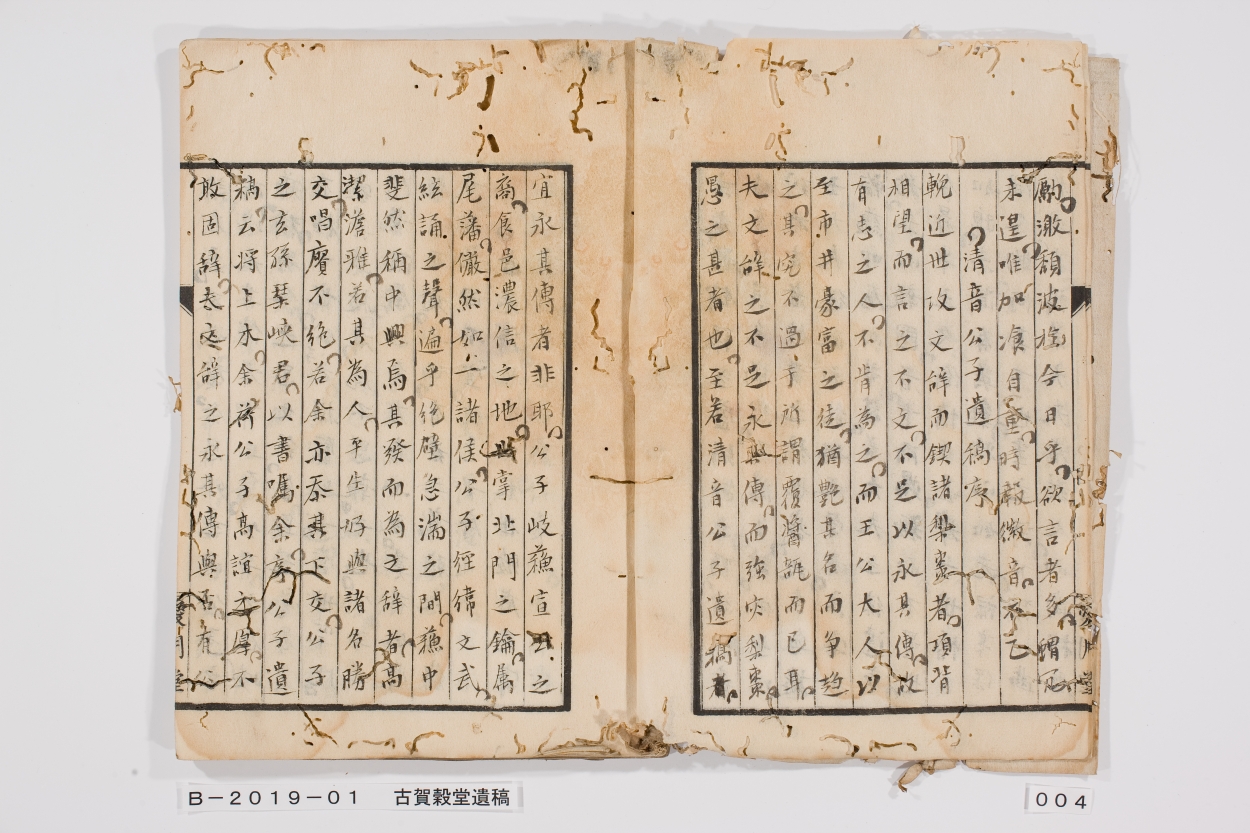 勵激頽波於今日乎欲言者多
未遑唯加飡自重時嗣徽音不乙
清音公子遺稿序
輓近世攻文辭而鍥諸梨棗者項背
相望而言之不文不足以永其傳故
有志之人不肯為之而王公大人以
至市井豪富之徒猶艶其名而争趨
之其究不過乎所謂覆醬瓿而已耳
夫文辭之不足永其傳而強灾梨棗
愚之甚者也至若清音公子遺稿者
宜永其傳者非耶公子岐蘓宣公之
裔食邑濃信之地掌北門之鑰属
尾藩儼然如一諸侯公子經緯文武
絃誦之聲遍乎絶壁急湍之間蘓中
斐然稱中興焉其發而為之辞者高
潔澹雅若其為人平生好與諸名勝
交唱賡不絶若余亦忝其下交公子
之玄孫琹峽君以書囑余序公子遺
稿云将上木余荷公子髙誼不
敢固辞夫文辞之永其傳與否有
B-2019-01 古賀穀堂遺稿
004